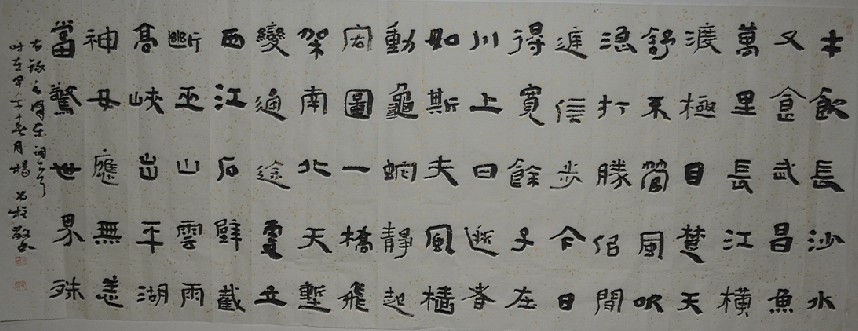 才飲長沙水
又食武昌魚
萬里長江橫
渡極目楚天
舒不管風吹
浪打勝佀閒
庭信步今日
得寬餘子在
川上曰逝者
如斯夫風檣
動龜蛇靜起
宏圖一橋飛
架南北天塹
變通途更立
西江石壁截
斷巫山雲雨
高峽出平湖
神女應無恙
當驚世界殊
右錄毛澤東詞一首
時在甲午十二月楊